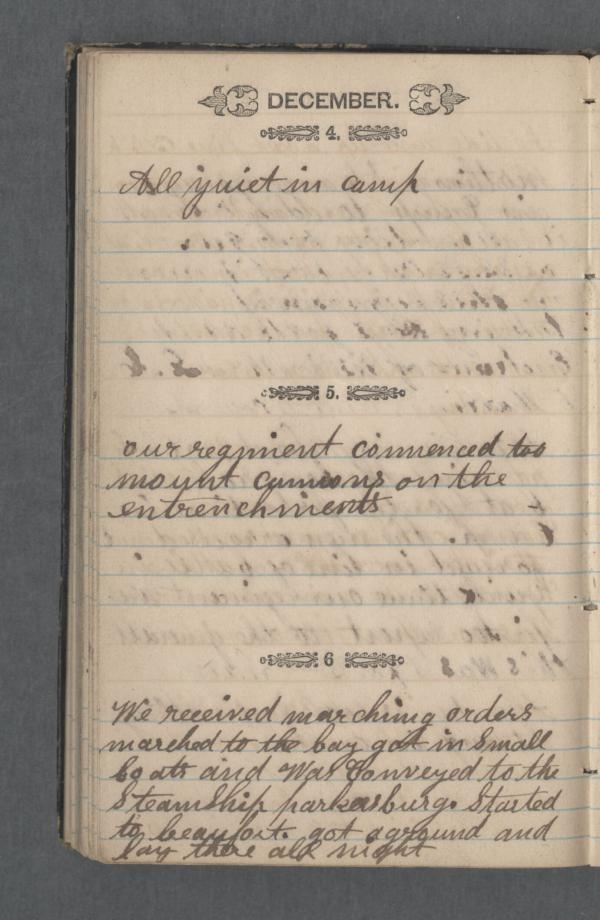 DECEMBER.
4.
All quiet in camp
5.
our regment commenced too
mount cannons on the
entrenchments
6
We received marching orders
marched to the bay got in Small
boats and Was Conveyed to the
Steamship parkersburg. Started
to beaufort. got aground and
lay there all night